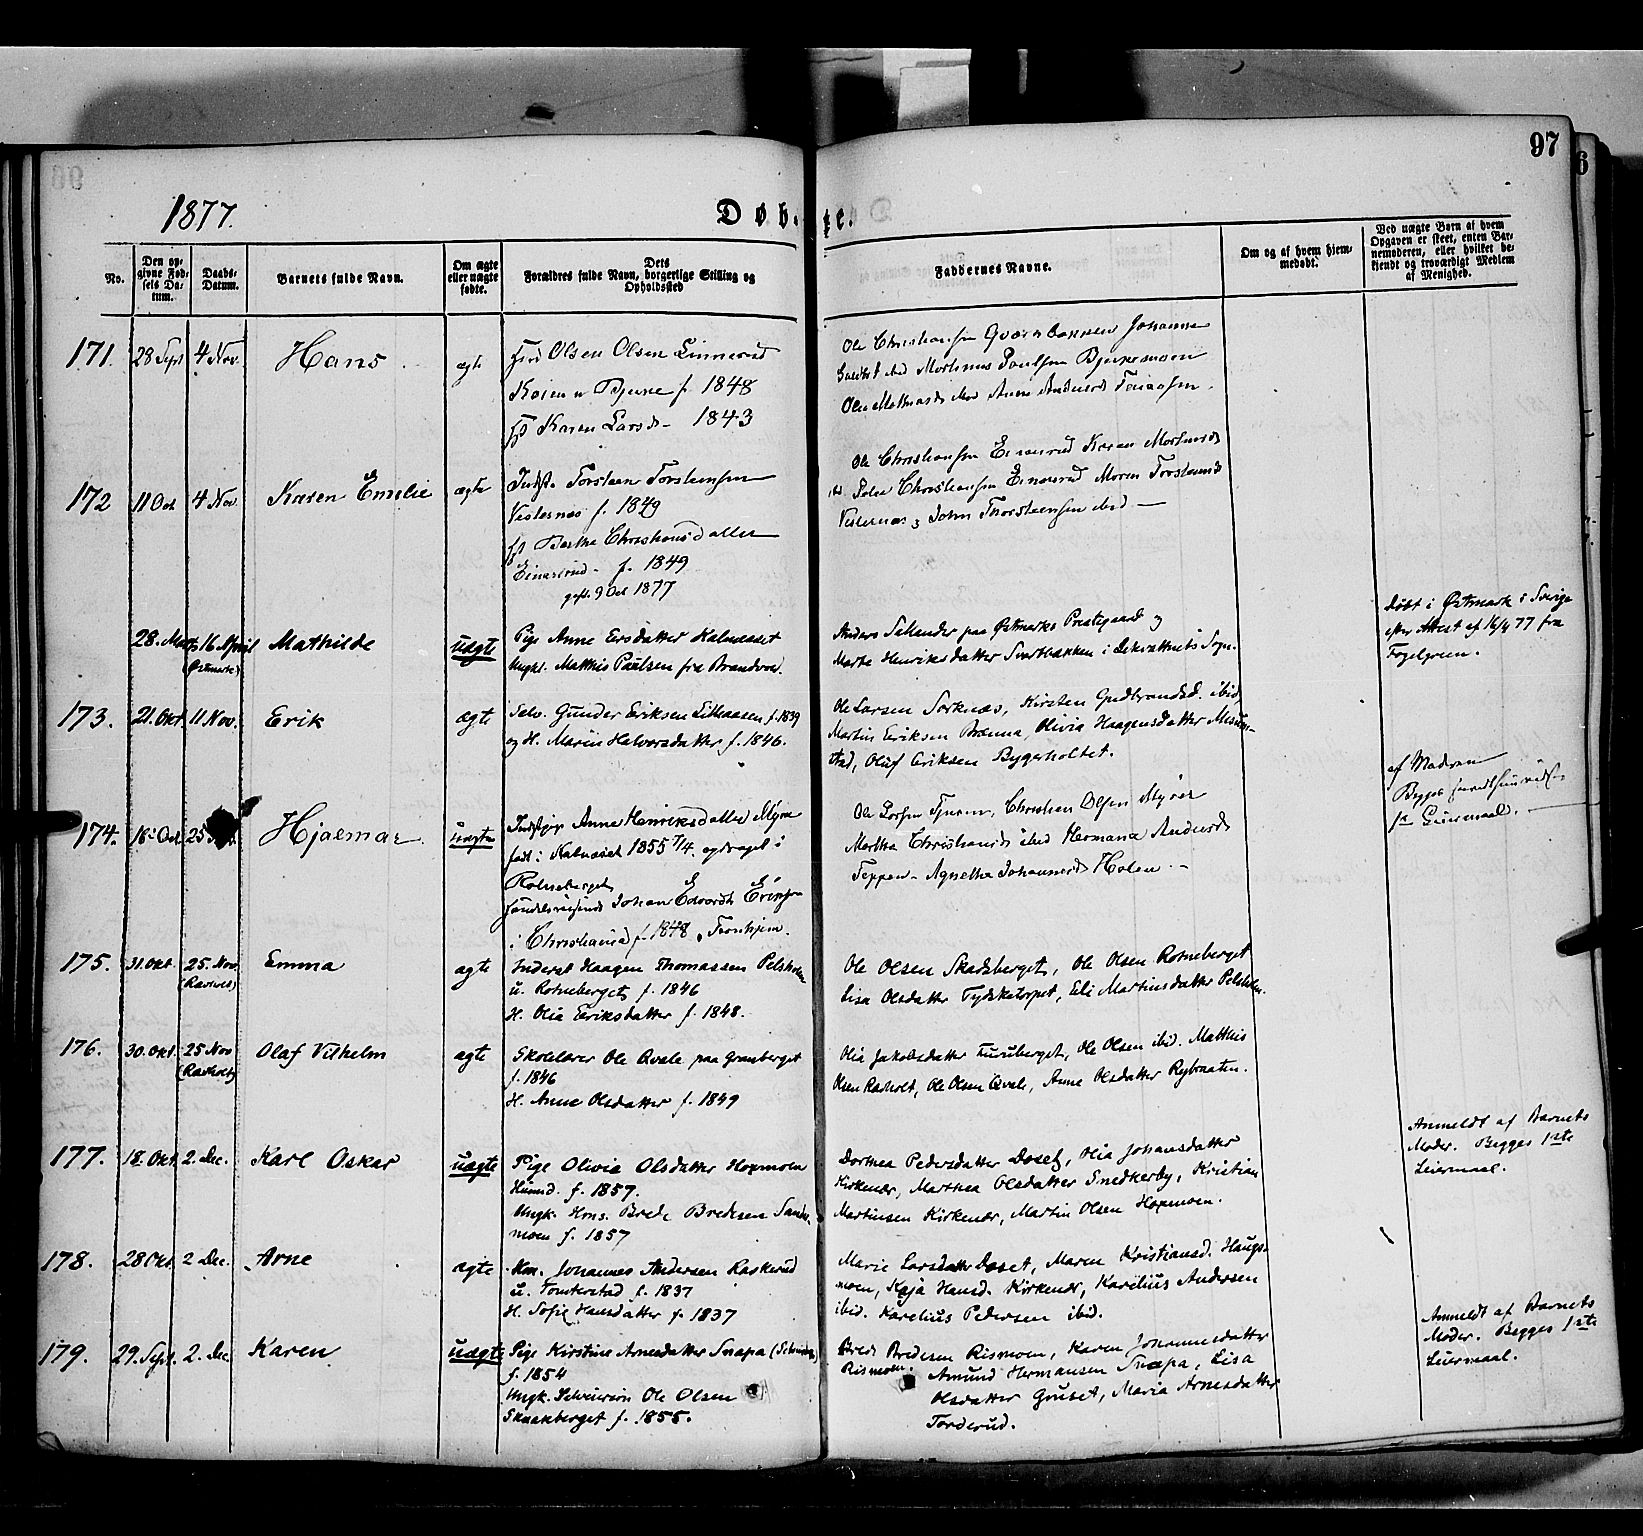 97
1877.
Døbte
No.
Den op-
givne Fød-
sels Da-
tum.
Daabs-
Datum.
Barnets fulde Navn.
Om ægte
eller uægte
fødte.
Dets
Forældres fulde Navn, borgerlige Stilling og
Opholdssted
Faddernes Navne.
Om og af hvem hjem-
medøbt.
Ved uægte Børn af hvem
Opgaven er skeet, enten Bar-
nemoderen, eller hvilket be-
kjendt og troværdigt Medlem
af Menighed.
171. 28 Sept 4 Nov. Hans ægte
Olsen Olsen Linnerud
f. 1848
Karen Larsd. 1843
Ole Christiansen Johanne
Mortinus Paulsen Bjerkemoen
172 11 Oct 4 Nov. Karen Emelie ægte
Indst. Torsteen Torstensen
Vesternæs f. 1849
Berthe Christiansdatter
Einarsrud f. 1849
gift 9 Oct 1877
Ole Christiansen Einarsrud Karen
Peder Christiansen Einarsrud Maren
Vesternæs, John Thorsteensen ibid
28. Marts 16 April Mathilde uægte
(Østmark)
Pige Anne Ersdatter Kalnæset
Ungk. Matthis Paulsen fra Brandvol.
Anders Sellander paa Østmarks Prestegaard og
Marte Henriksdatter Svartbakken i Dekvattnets Sogn.
Døbt i Østmark i Sverige
efter Attest af 16/4 77 fra
Fogelgreen.
173. 21. Okt. 11 Nov. Erik ægte
Selv. Gunder Eriksen Lillaasen f. 1839
og H. Marie Halvorsdatter f. 1846.
Ole Larsen Sorknæs, Kirsten Gudbrandsd. ibid,
Martin Eriksen Brænna, Olivia Haagensdatter
stad, Oluf Eriksen Bygerholtet.
174. 18 Oct 25 Hjalmar uægte
Anne Henriksdatter Myra
født i Kalnæset 1855 7/4. opdraget i
Rotneberget
Johan Edvardt
i Christiania f. 1848, Tronhjem.
Ole Christian Olsen Myrer
Martha Christiansd. ibid Hermana Andersd.
Teppen Agnethe Johannesd. Holen
af Moderen
Begges
1ste Leiermaal.
175. 31. Okt. 25. Nov. Emma ægte
Inderst Haagen Thomassen Pelsholen
u. Rotneberget f. 1846
H. Olia Eriksdatter f. 1848.
Ole Olsen Skadsberget, Ole Olsen Rotneberget
Lisa Olsdatter Tydsketorpet, Eli Martinsdatter Pelsholen.
176. 30. Okt. 25 Nov Olaf Vilhelm ægte
Skolelærer Ole Qvale paa Granberget
f. 1846
H. Anne Olsdatter f. 1849
Olia Jakobsdatter Furuberget, Ole Olsen ibid. Matthis
Olsen Ravholt, Ole Olsen Qvale, Anne Olsdatter Rybraaten.
177. 18. Okt. 2. Dec. Karl Oskar uægte
Pige Olivie Olsdatter Hopmoen
f. 1857.
Ungk. Brede Bredesen Sander-
moen f. 1857
Dorthea Pedersdatter Doset, Olia Johansdatter
Kirkenær, Marthea Olsdatter Snedkerby, Kristian
Martinsen Kirkenær, Martin Olsen Hopmoen.
Anmeldt af Barnets
Moder. Begges 1ste
Leiermaal.
178. 28 Okt. 2 Dec. Arne ægte
Johannes Andersen Raskerud
f. 1837
H. Sofie Hansdatter f. 1837
Marie Larsdatter Doset, Maren Kristiansd. Haugs-
moen, Kaja Hansd. Kirkenær, Karelius Andersen
ibid. Karelius Pedersen ibid.
179. 29. Sept. 2. Dec. Karen uægte
Pige Kirstine Arnesdatter Snapa
f. 1854
Ungk. Ole Olsen
Skulaberget f. 1855.
Brede Bredesen Rismoen, Karen Johannesdatter
Rismoen. Amund Hermansen Snapa, Lisa
Olsdatter Gruset, Maria Arnesdatter
Torderud.
Anmeldt af Barnets
Moder. Begges 1ste
Leiermaal.